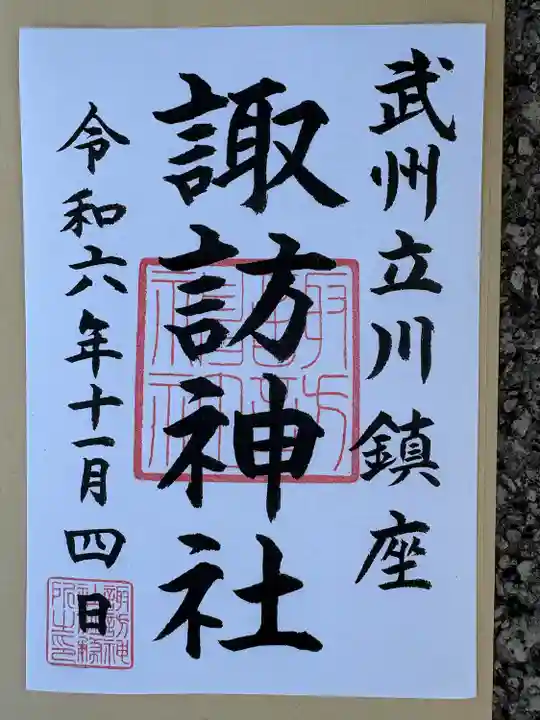 武州立川鎮座
諏訪神社
令和六年十一月四日
諏訪神社